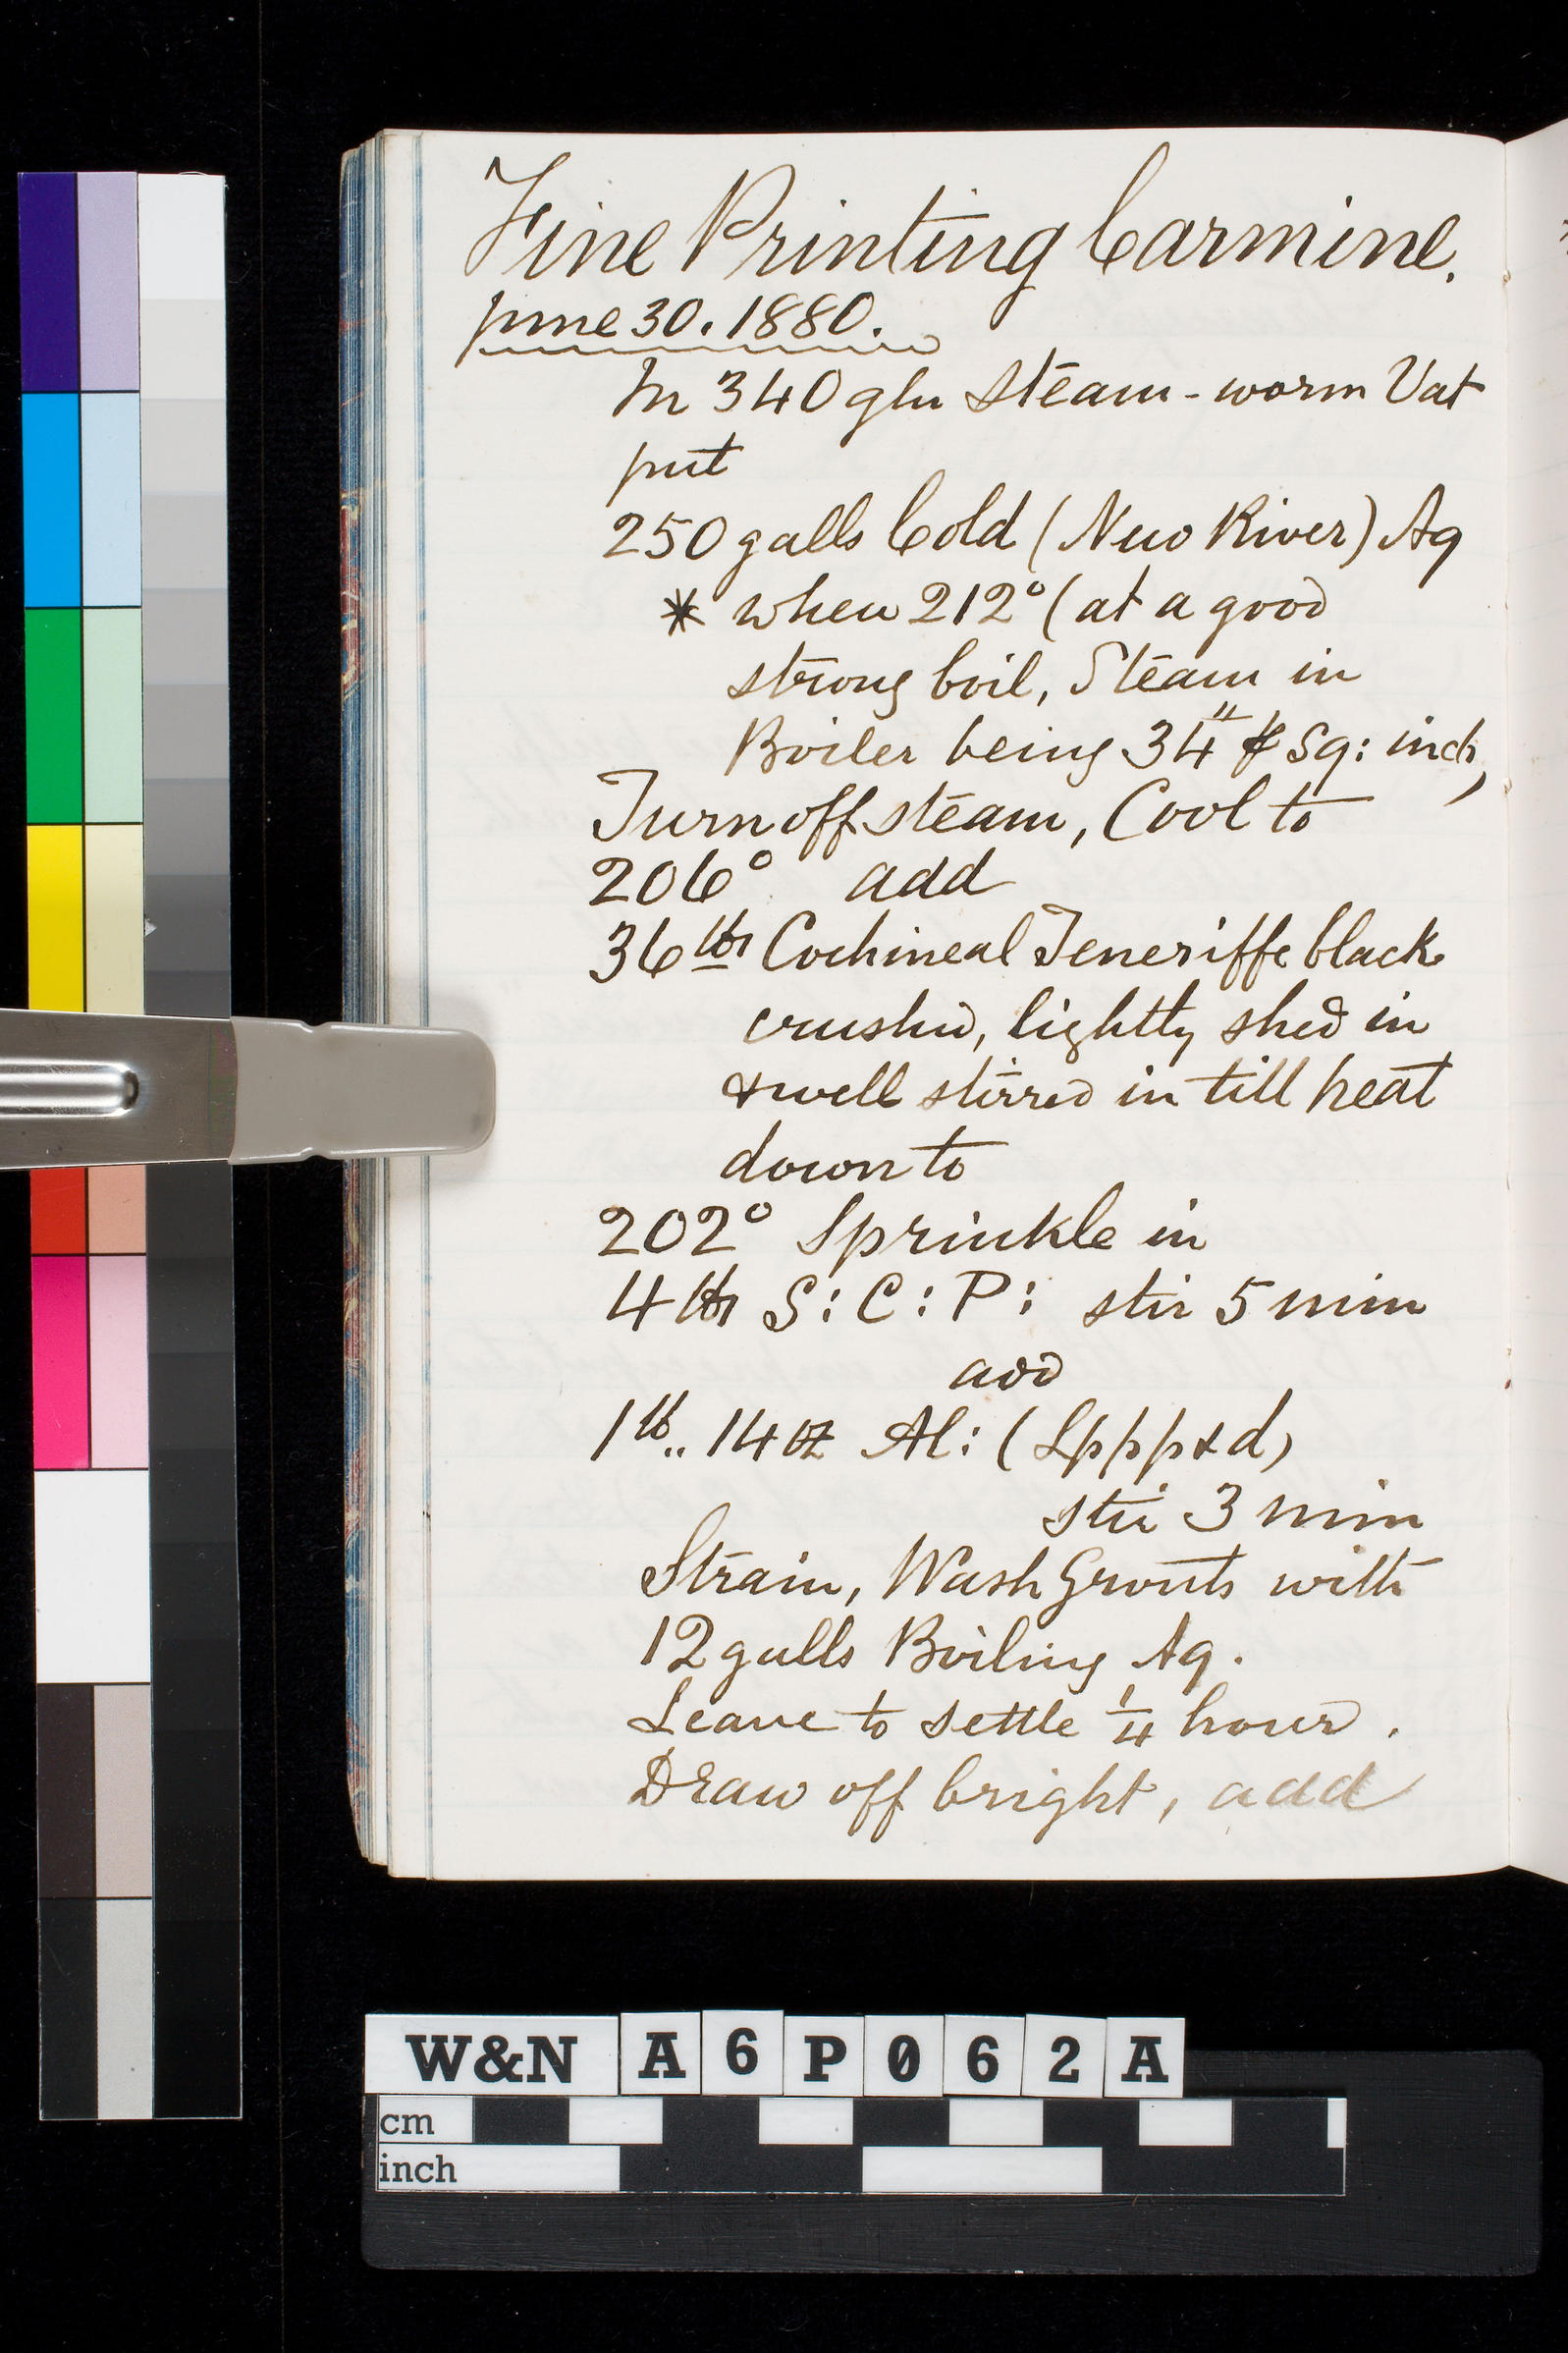 Fine Printing Carmine.
June 30. 1880.
In 340 gln Steam-worm Vat
put
250 galls Cold (New River) Aq
* when 212° (at a good
strong boil, Steam in
Boiler being 34" Sq: inch,
Turn off steam, Cool to
206° add
36 lbs Cochineal Teneriffe black
crushd, lightly shed in
& well stirred in till heat
down to
202° Sprinkle in
4 lbs S: C: P: stir 5 min
add
1 lb.. 14 oz Al: (Lppp&d)
stir 3 min
Strain, Wash Grouts with
12 galls Boiling Aq.
Leave to settle 1/4 hour.
Draw off bright, add
W&N A6P062A
cm
inch